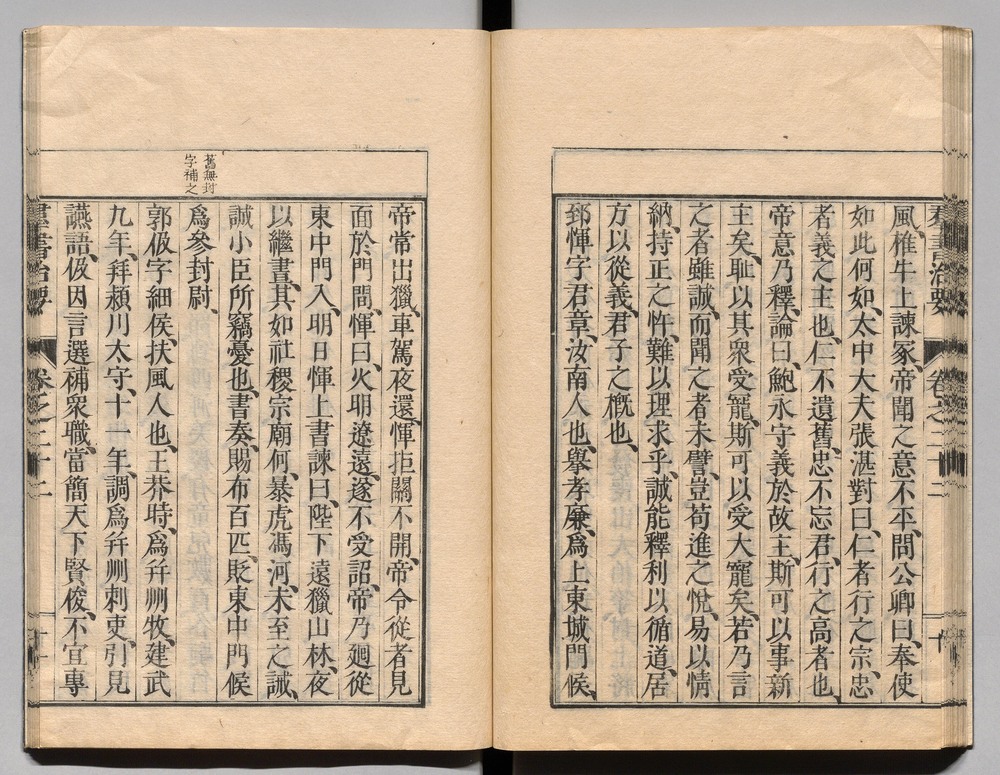 群書治要 卷之二十二 十
風椎牛上諫冢、帝聞之意不平、問公卿曰、奉使
如此何如、太中大夫張湛對曰、仁者行之宗、忠
者義之主也、仁不遺舊、忠不忘君、行之高者也、
帝意乃釋、論曰、鮑永守義於故主、斯可以事新
主矣、耻以其衆受寵、斯可以受大寵矣、若乃言
之者雖誠、而聞之者未譬、豈苟進之悅、易以情
納、持正之忤、難以理求乎、誠能釋利以循道、居
方以從義、君子之概也、
郅惲字君章、汝南人也、擧孝廉、爲上東城門候、
帝常出獵、車駕夜還、惲拒關不開、帝令從者見
面於門閒、惲曰、火明遼遠、遂不受詔、帝乃廻從
東中門入、明日惲上書諫曰、陛下遠獵山林、夜
以繼晝、其如社稷宗廟何、暴虎馮河、未至之誡、
誠小臣所竊憂也、書奏、賜布百匹、貶東中門候
爲參封尉、
舊無封
字補之
郭伋字細侯、扶風人也、王莽時、爲幷州牧、建武
九年、拜潁川太守、十一年、調爲幷州刺吏、引見
讌語、伋因言選補衆職、當簡天下賢俊、不宜專
群書治要 卷之二十二 十一